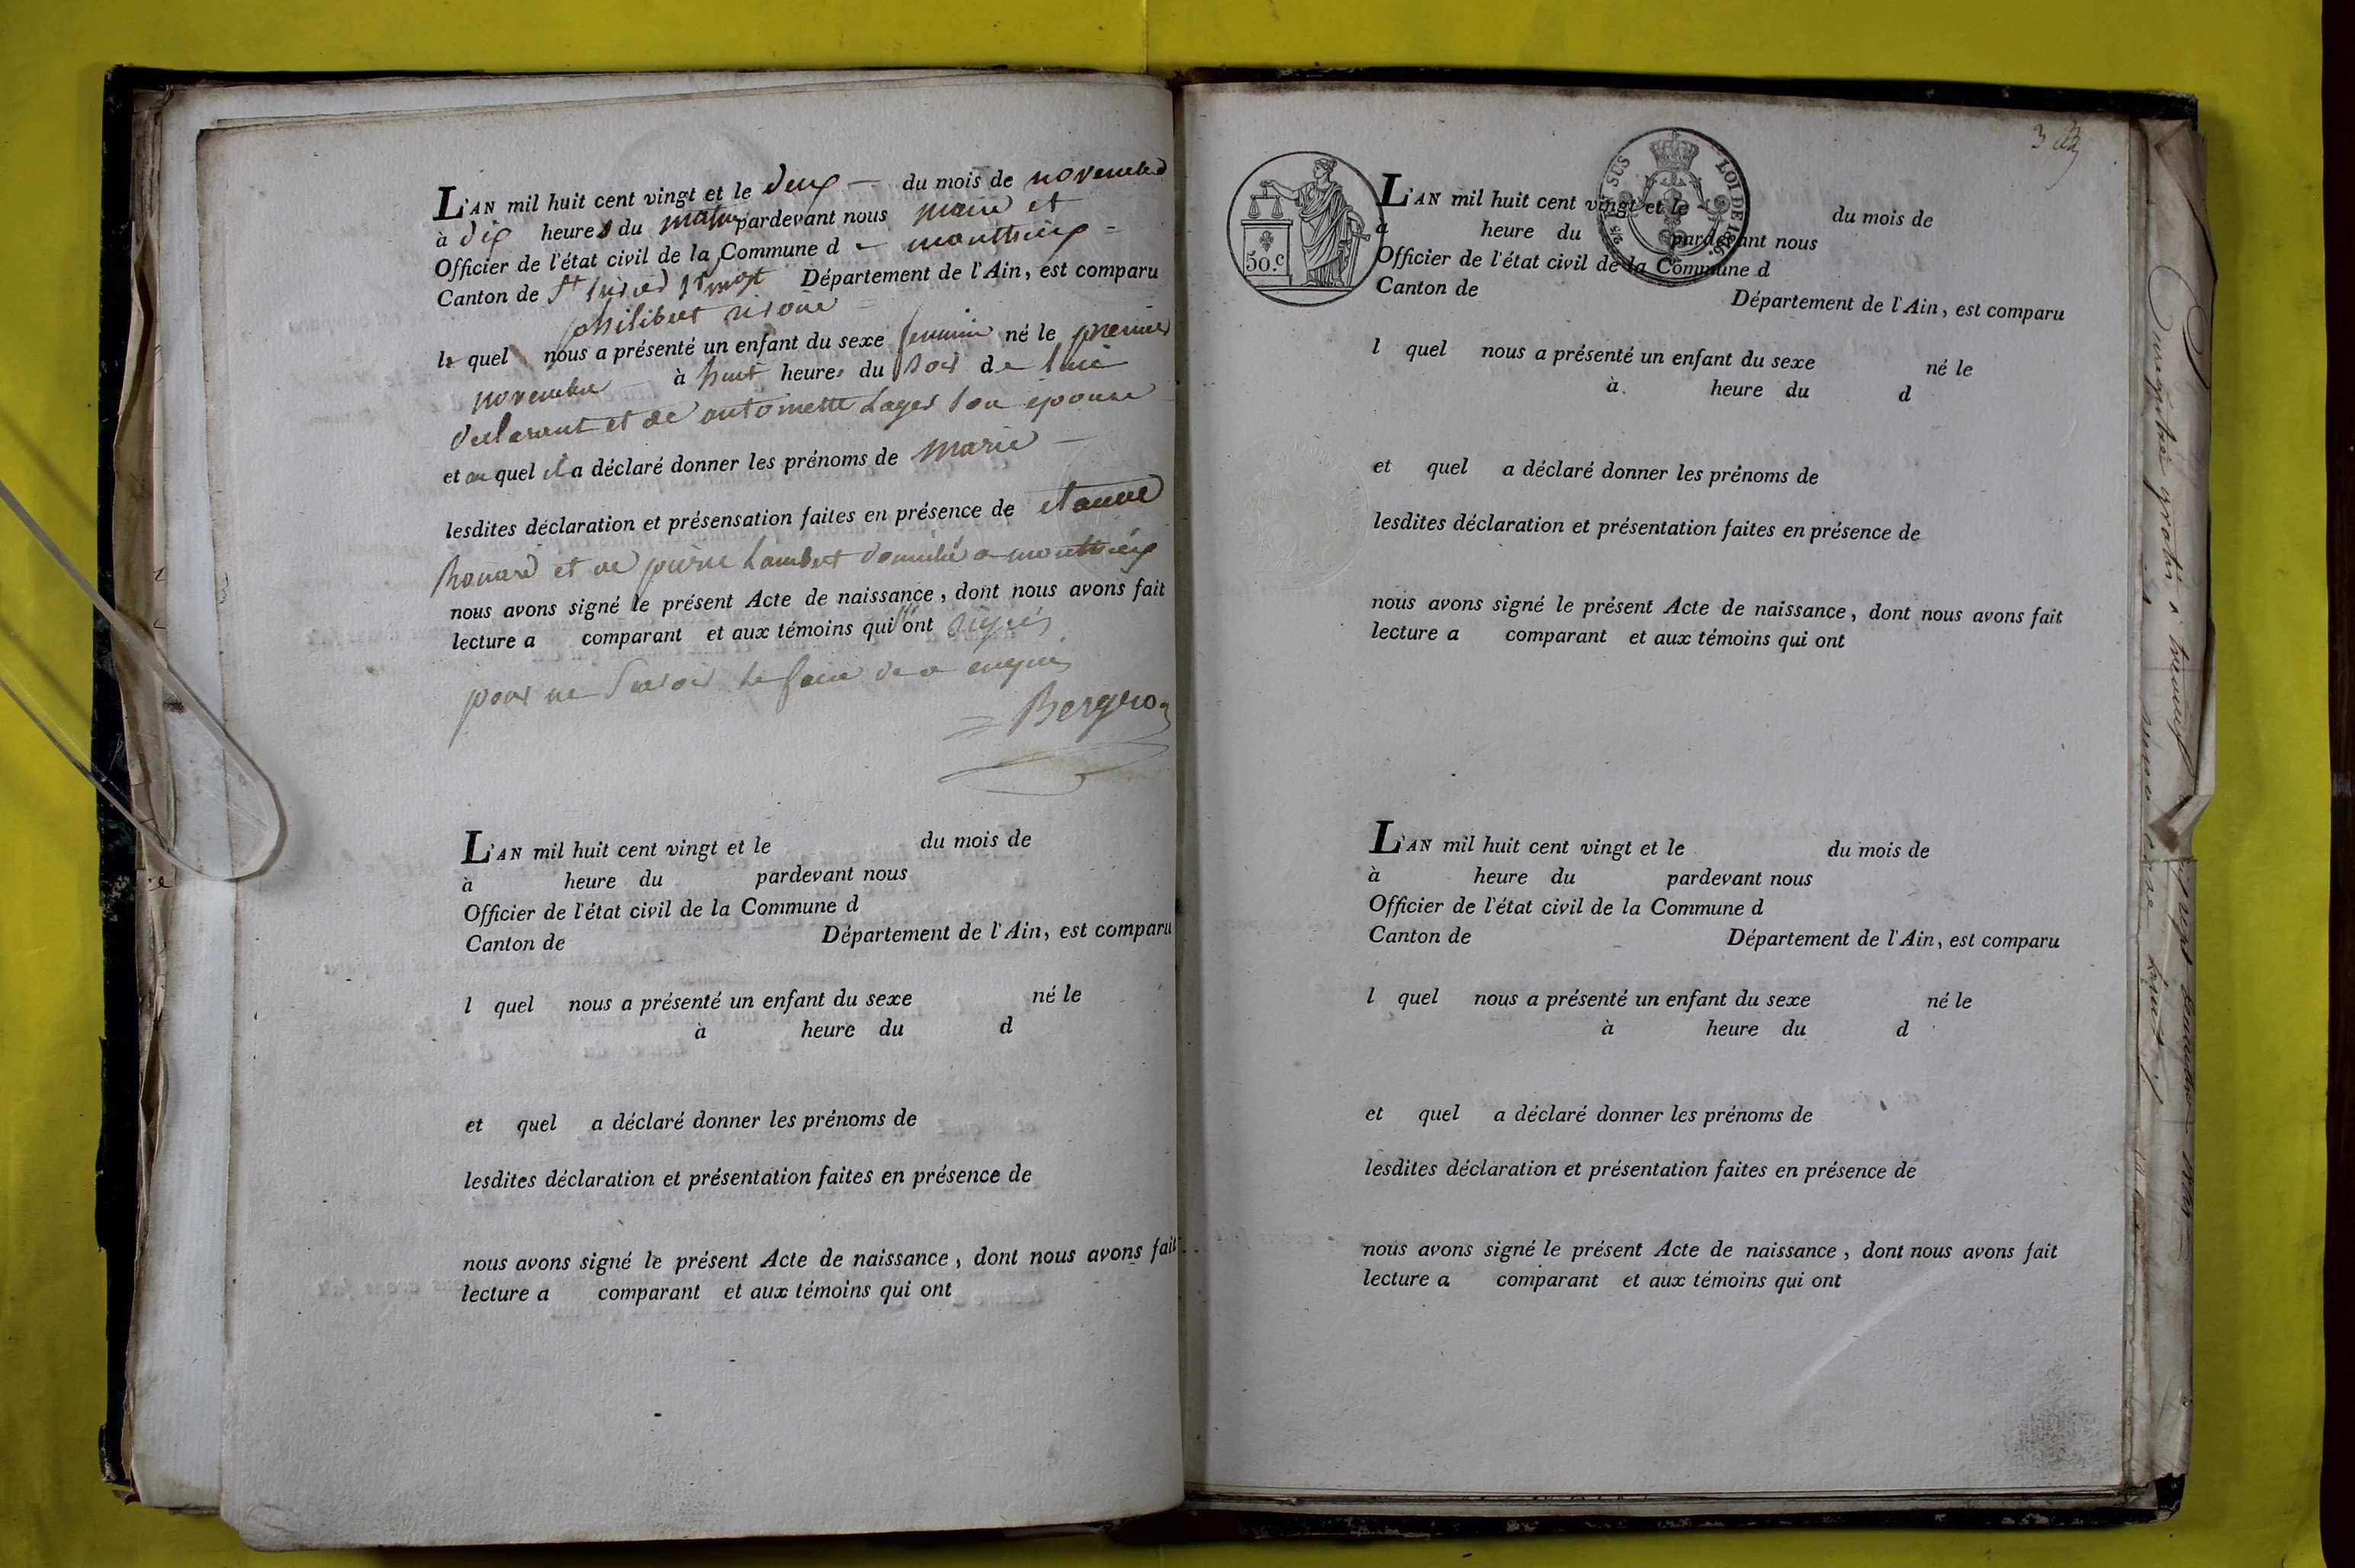 L'AN mil huit cent vingt et le deux du mois de novembre
à dix heures du matin pardevant nous maire et
Officier de l'état civil de la Commune de monthieux
Canton de St Département de l'Ain, est comparu
philibert
le quel nous a présenté un enfant du sexe feminin né le premier
novembre à huit heures du soir de lui
declarant et de antoinette Lager son épouse
et au quel il a déclaré donner les prénoms de marie
lesdites déclaration et présensation faites en présence de
et de pierre Lambert domicilié a monthieux
nous avons signé le présent Acte de naissance, dont nous avons fait
lecture a comparant et aux témoins qui ont signés
pour ne savoir le faire de a enquis
Bergeron
L'AN mil huit cent vingt et le du mois de
à heure du pardevant nous
Officier de l'état civil de la Commune d
Canton de Département de l'Ain, est comparu
l quel nous a présenté un enfant du sexe né le
à heure du d
et quel a déclaré donner les prénoms de
lesdites déclaration et présentation faites en présence de
nous avons signé le présent Acte de naissance, dont nous avons fait
lecture a comparant et aux témoins qui ont
3
50.c
SUS LOI DE 1816
L'AN mil huit cent vingt et le du mois de
à heure du pardevant nous
Officier de l'état civil de la Commune d
Canton de Département de l'Ain, est comparu
l quel nous a présenté un enfant du sexe né le
à heure du d
et quel a déclaré donner les prénoms de
lesdites déclaration et présentation faites en présence de
nous avons signé le présent Acte de naissance, dont nous avons fait
lecture a comparant et aux témoins qui ont
L'AN mil huit cent vingt et le du mois de
à heure du pardevant nous
Officier de l'état civil de la Commune d
Canton de Département de l'Ain, est comparu
l quel nous a présenté un enfant du sexe né le
à heure du d
et quel a déclaré donner les prénoms de
lesdites déclaration et présentation faites en présence de
nous avons signé le présent Acte de naissance, dont nous avons fait
lecture a comparant et aux témoins qui ont
Enregistré gratis à trevoux